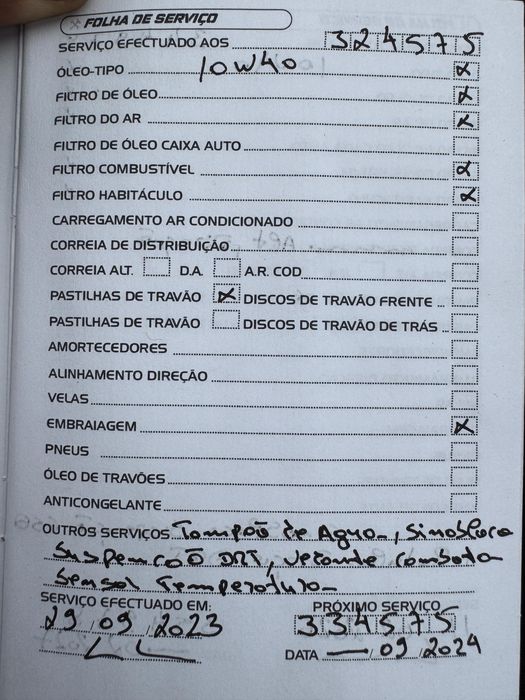 FOLHA DE SERVIÇO
SERVIÇO EFECTUADO AOS 324575
ÓLEO-TIPO 10W40 X
FILTRO DE ÓLEO X
FILTRO DO AR X
FILTRO DE ÓLEO CAIXA AUTO
FILTRO COMBUSTÍVEL X
FILTRO HABITÁCULO X
CARREGAMENTO AR CONDICIONADO
CORREIA DE DISTRIBUIÇÃO
CORREIA ALT. D.A. A.R. COD
PASTILHAS DE TRAVÃO X DISCOS DE TRAVÃO FRENTE
PASTILHAS DE TRAVÃO DISCOS DE TRAVÃO DE TRÁS
AMORTECEDORES
ALINHAMENTO DIREÇÃO
VELAS
EMBRAIAGEM X
PNEUS
ÓLEO DE TRAVÕES
ANTICONGELANTE
OUTROS SERVIÇOS Tampão de Agua,
DRT,
Sensol Temperatura
SERVIÇO EFECTUADO EM: PRÓXIMO SERVIÇO
29/09/2023 334575
DATA — /09/2024